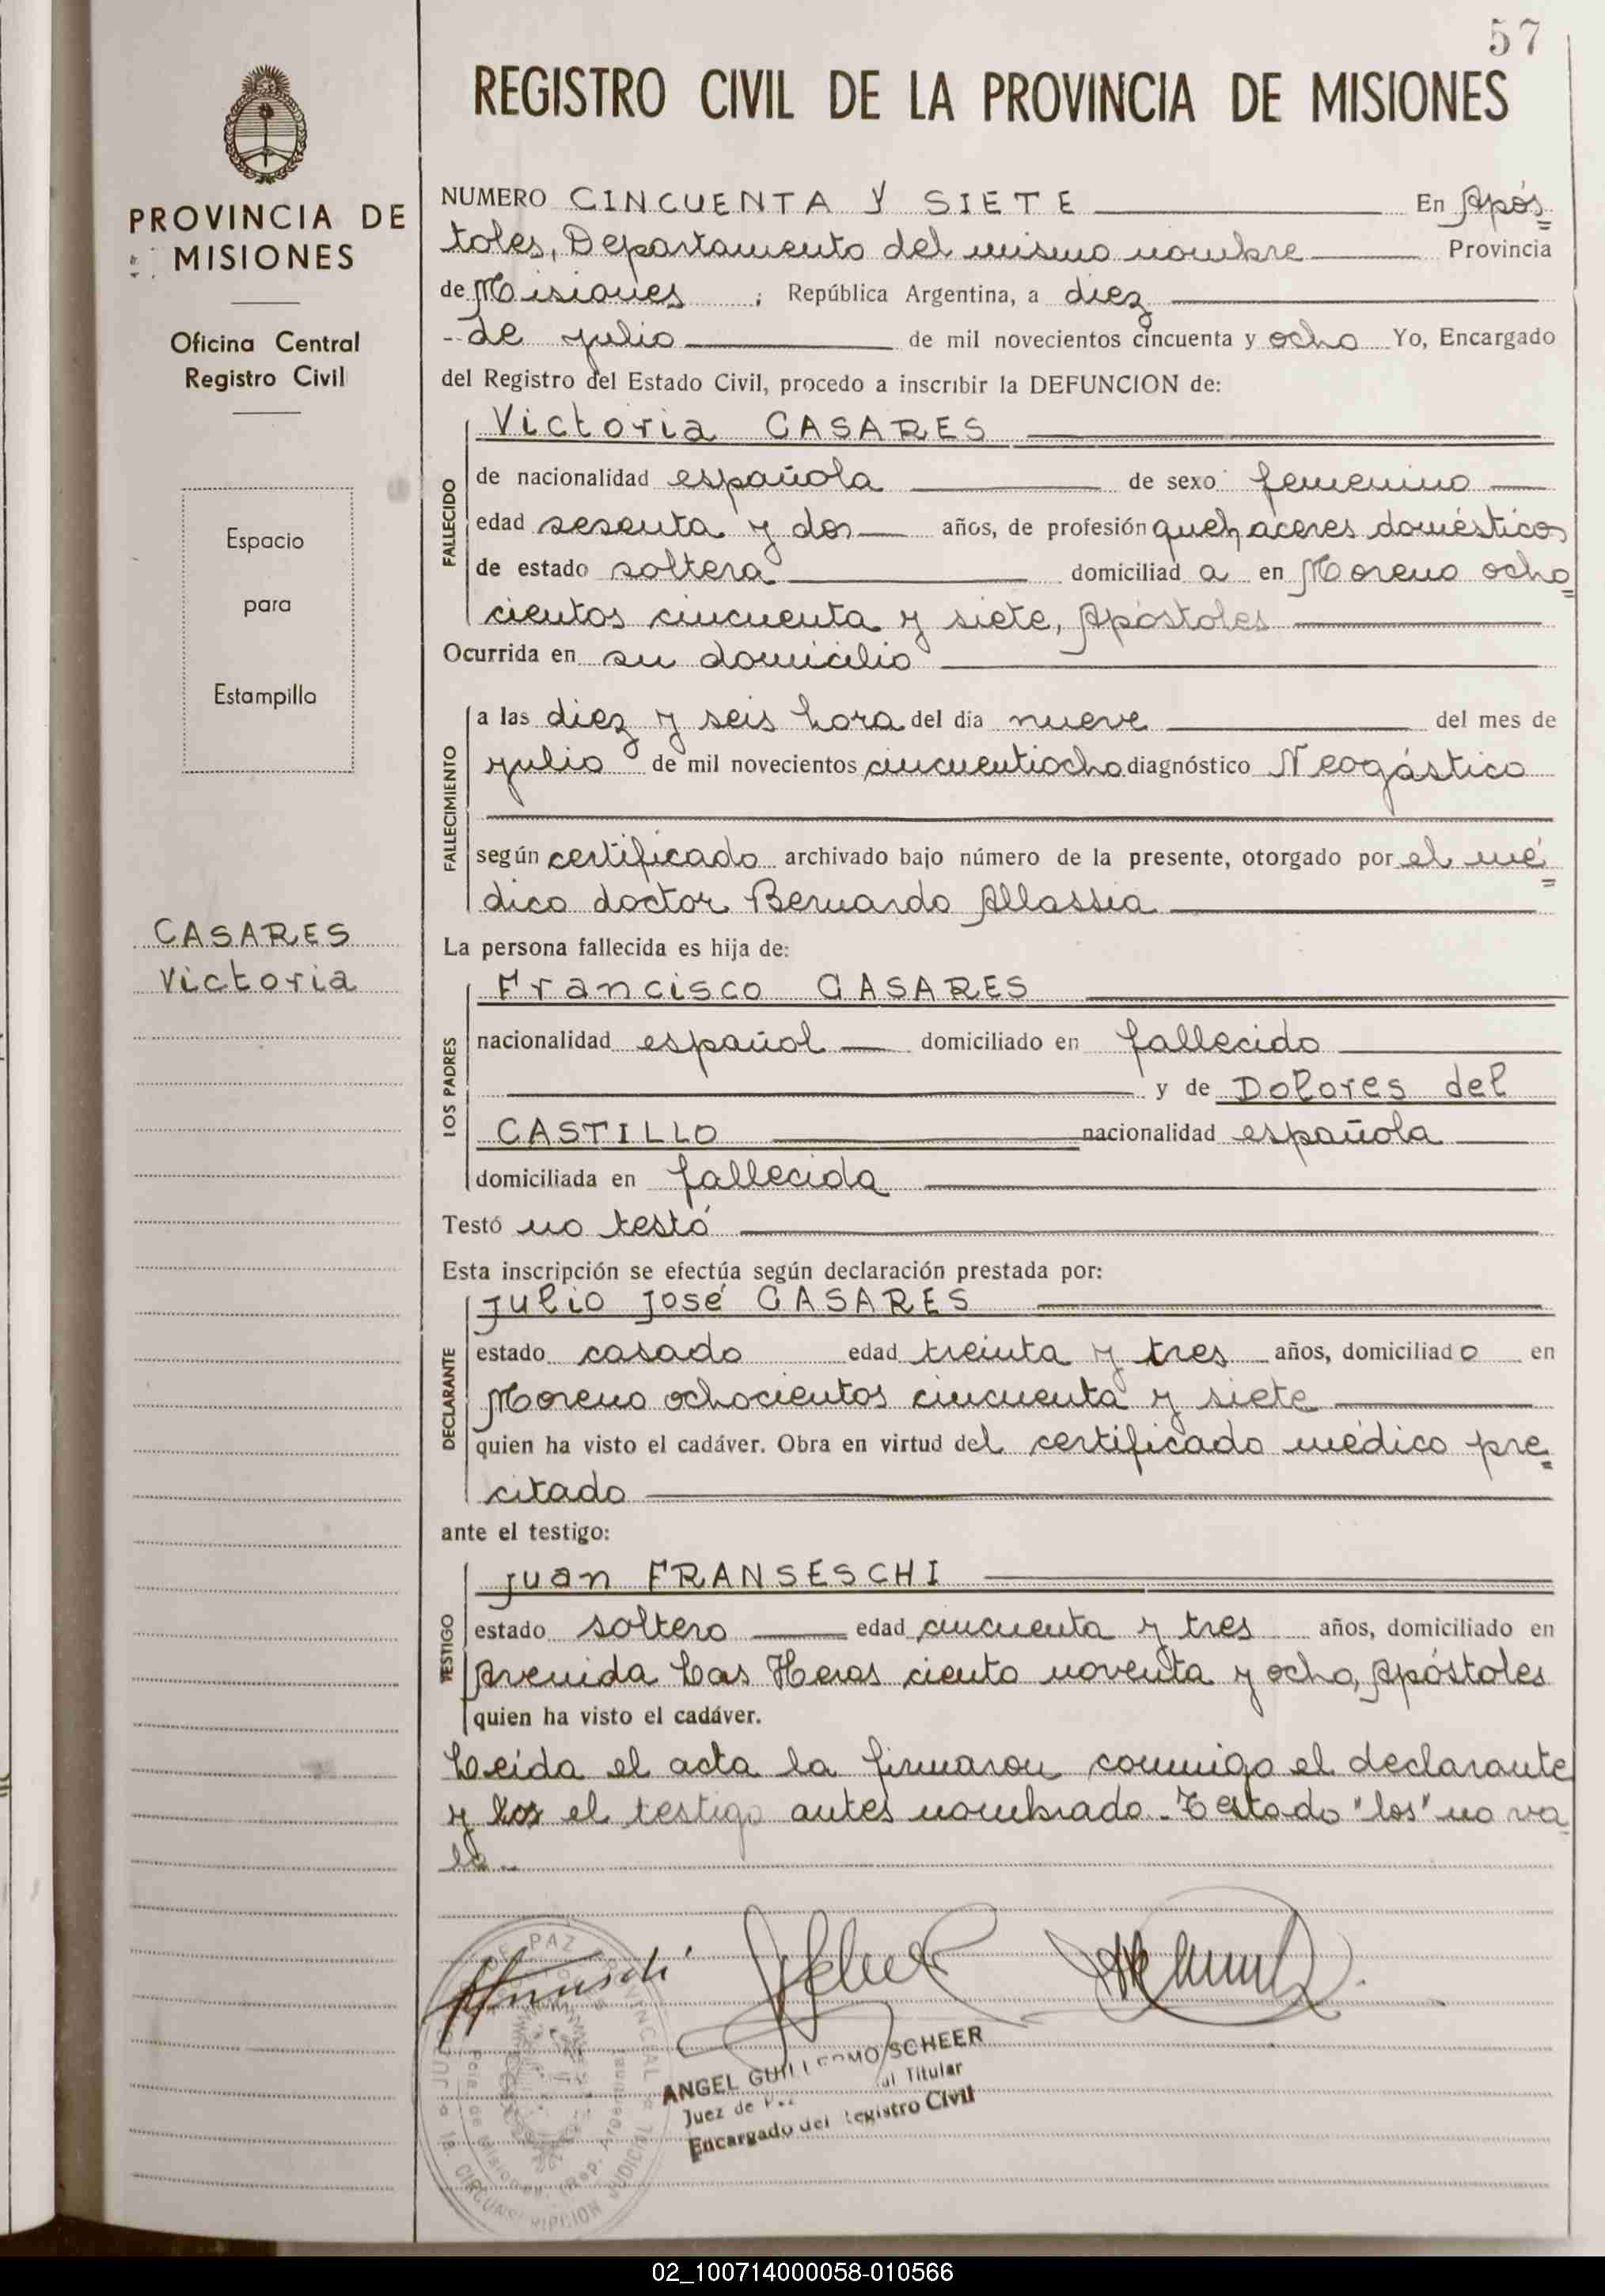 57
REGISTRO CIVIL DE LA PROVINCIA DE MISIONES
PROVINCIA DE
MISIONES
Oficina Central
Registro Civil
Espacio
para
Estampilla
CASARES
Victoria
NUMERO CINCUENTA Y SIETE En Após=
toles, Departamento del mismo nombre Provincia
de Misiones, República Argentina, a diez
- de julio de mil novecientos cincuenta y ocho Yo, Encargado
del Registro del Estado Civil, procedo a inscribir la DEFUNCION de:
FALLECIDO
Victoria CASARES
de nacionalidad española de sexo femenino
edad sesenta y dos años, de profesión quehaceres domésticos
de estado soltera domiciliad a en Moreno ocho=
cientos cincuenta y siete, Apóstoles
Ocurrida en su domicilio
FALLECIMIENTO
a las diez y seis hora del día nueve del mes de
julio de mil novecientos cincuentiocho diagnóstico Neogástico
según certificado archivado bajo número de la presente, otorgado por el mé=
dico doctor Bernardo Allassia
La persona fallecida es hija de:
LOS PADRES
Francisco CASARES
nacionalidad español domiciliado en fallecido
y de Dolores del
CASTILLO nacionalidad española
domiciliada en fallecida
Testó no testó
Esta inscripción se efectúa según declaración prestada por:
DECLARANTE
Julio José CASARES
estado casado edad treinta y tres años, domiciliado en
Moreno ochocientos cincuenta y siete
quien ha visto el cadáver. Obra en virtud del certificado médico pre=
citado
ante el testigo:
TESTIGO
Juan FRANSESCHI
estado soltero edad cincuenta y tres años, domiciliado en
Avenida Las Heras ciento noventa y ocho, Apóstoles
quien ha visto el cadáver.
Leída el acta la firmaron conmigo el declarante
y los el testigo antes nombrado. Testado "los" no va=
le.-
ANGEL GUILLERMO SCHEER
Juez de Titular
Encargado del Registro Civil
PAZ
CIRCUNSCRIPCION JUDICIAL
02_100714000058-010566